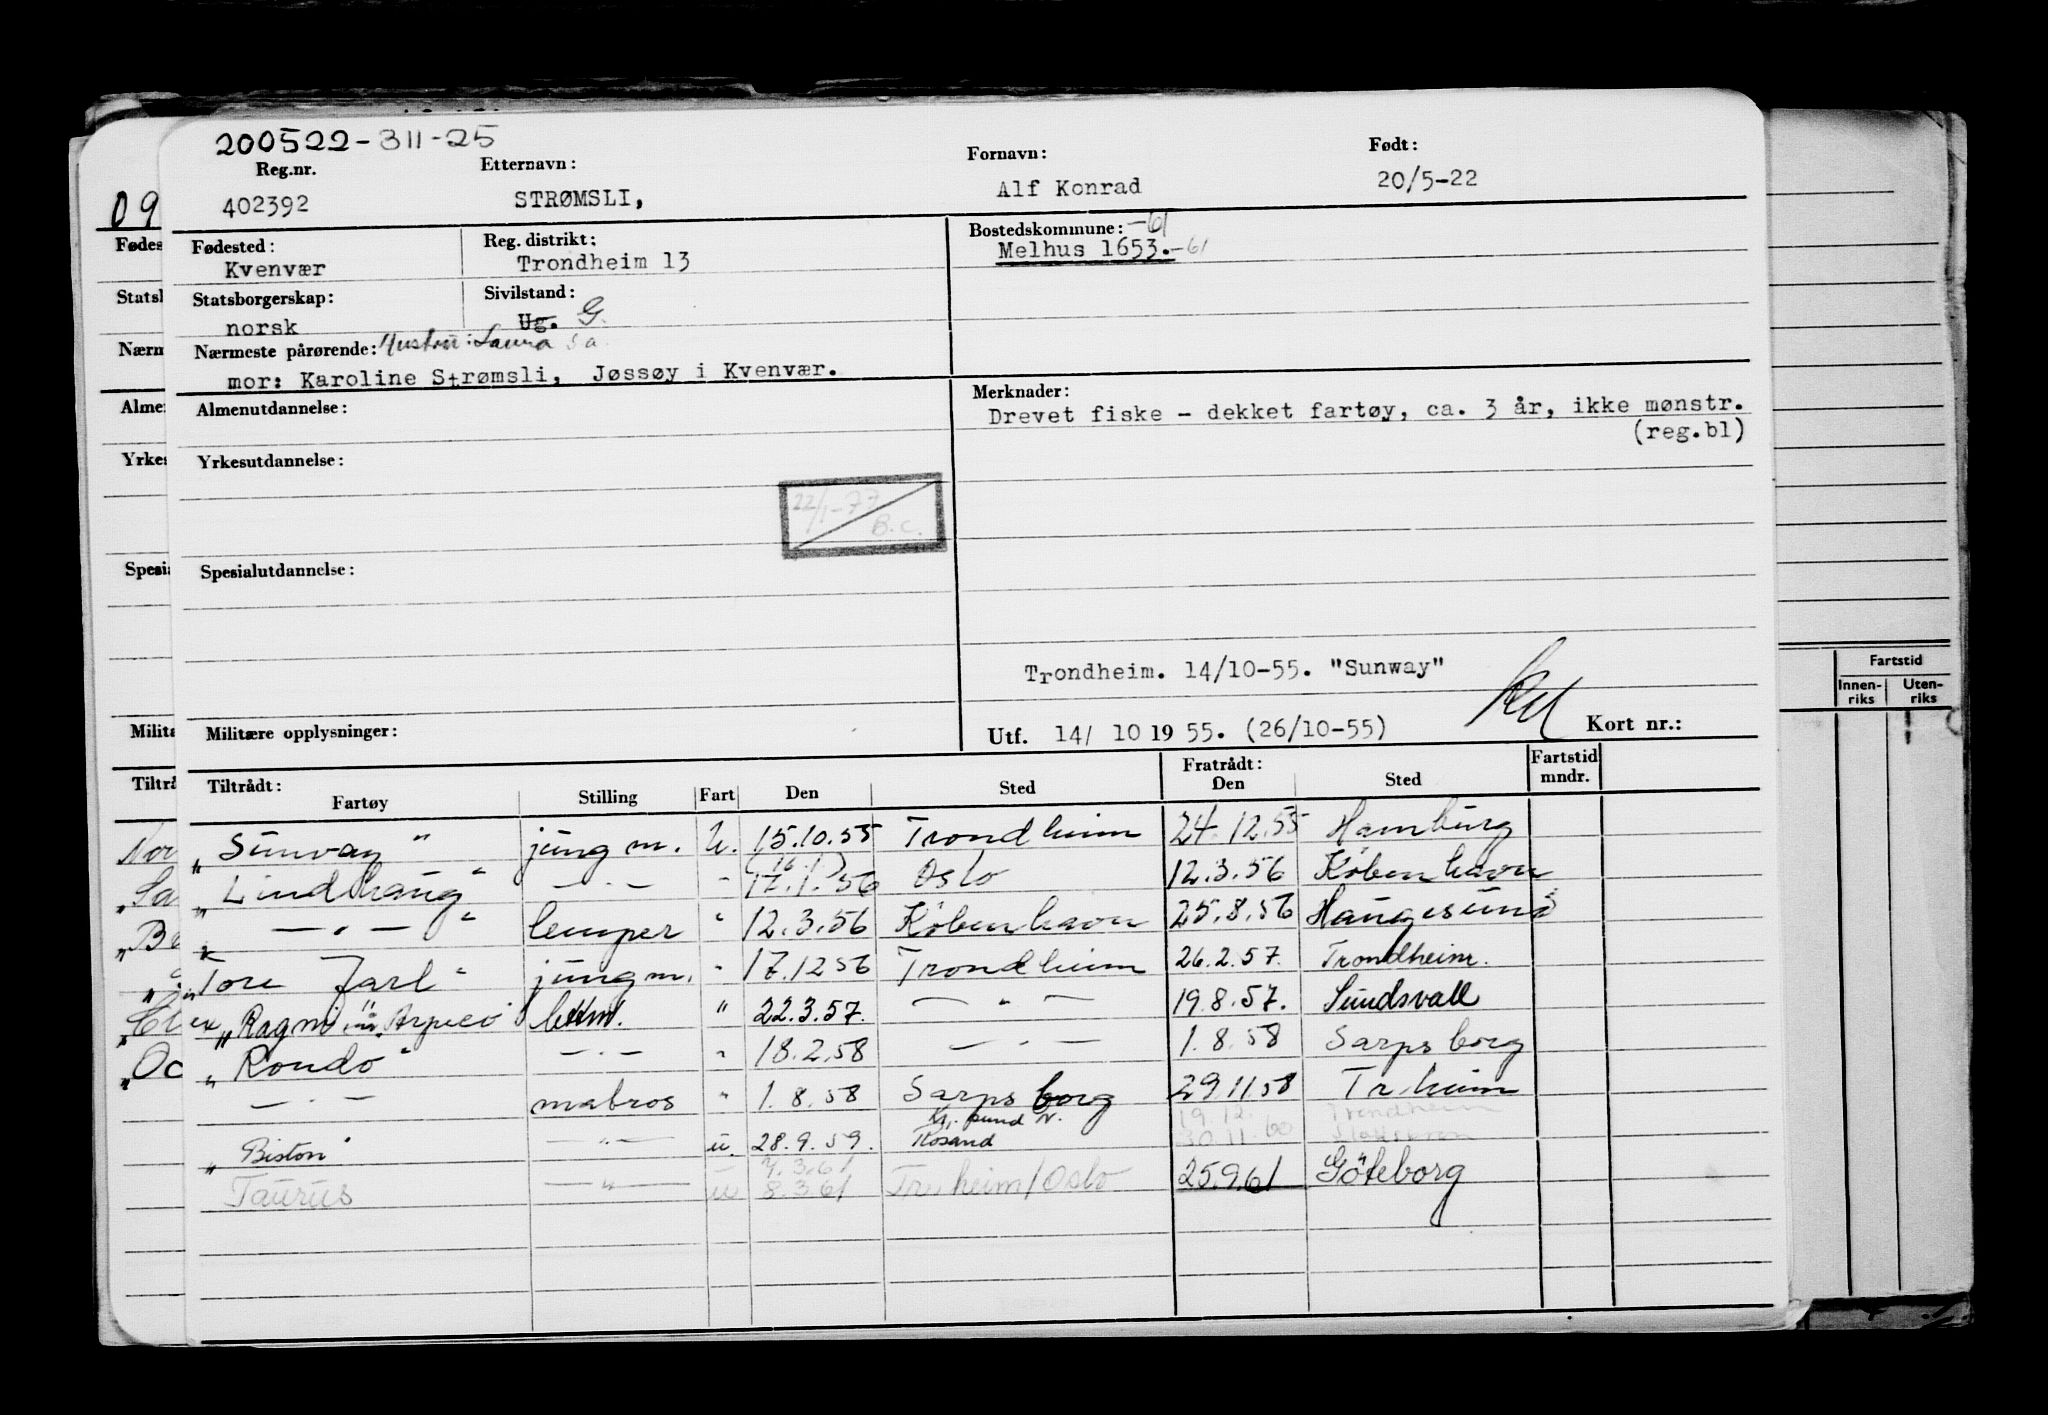 200522-311-25
Reg.nr. Etternavn: Fornavn: Født:
402392 STRØMSLI, Alf Konrad 20/5-22
09
Fødes Fødested: Reg. distrikt: Bostedskommune: -61
Kvenvær Trondheim 13 Melhus 1653.-61
Stats Statsborgerskap: Sivilstand:
norsk Ug. G.
Nærm Nærmeste pårørende: Hustru: Laura s a.
mor: Karoline Strømsli, Jøssøy i Kvenvær.
Almen Almenutdannelse: Merknader:
Drevet fiske - dekket fartøy, ca. 3 år, ikke mønstr.
(reg.bl)
Yrkes Yrkesutdannelse:
22/1-77
B.C.
Spesia Spesialutdannelse:
Trondheim. 14/10-55. "Sunway"
Milita Militære opplysninger: Utf. 14/ 10 19 55. (26/10-55) Kort nr.:
Fartstid
Innen-riks Uten-riks
Tiltrå Tiltrådt: Fratrådt: Fartstid mndr.
Fartøy Stilling Fart Den Sted Den Sted
"Sunway" jungm. U. 15.10.55 Trondheim 24.12.55 Hamburg
(16.1)
"Lindhaug" —·— " 17.1.56 Oslo 12.3.56 København
" —·— " lemper " 12.3.56 København 25.8.56 Haugesund
"Tore Jarl" jungm. " 17.12 56 Trondheim 26.2.57. Trondheim.
ex "Ragni" nå Arpeco lettm. " 22.3.57. —"— 19.8.57. Sundsvall
"Rondo" —·— " 18.2.58 —·— 1.8.58 Sarpsborg
—·— matros " 1.8.58 Sarpsborg 29.11.58 Tr.heim
Kr. sund N. 19.12. Trondheim
"Biston" —"— u. 28.9.59. Rosand 30.11.60
7.3.61
Taurus —"— u 8.3.61 Tr.heim/Oslo 25.9.61 Göteborg